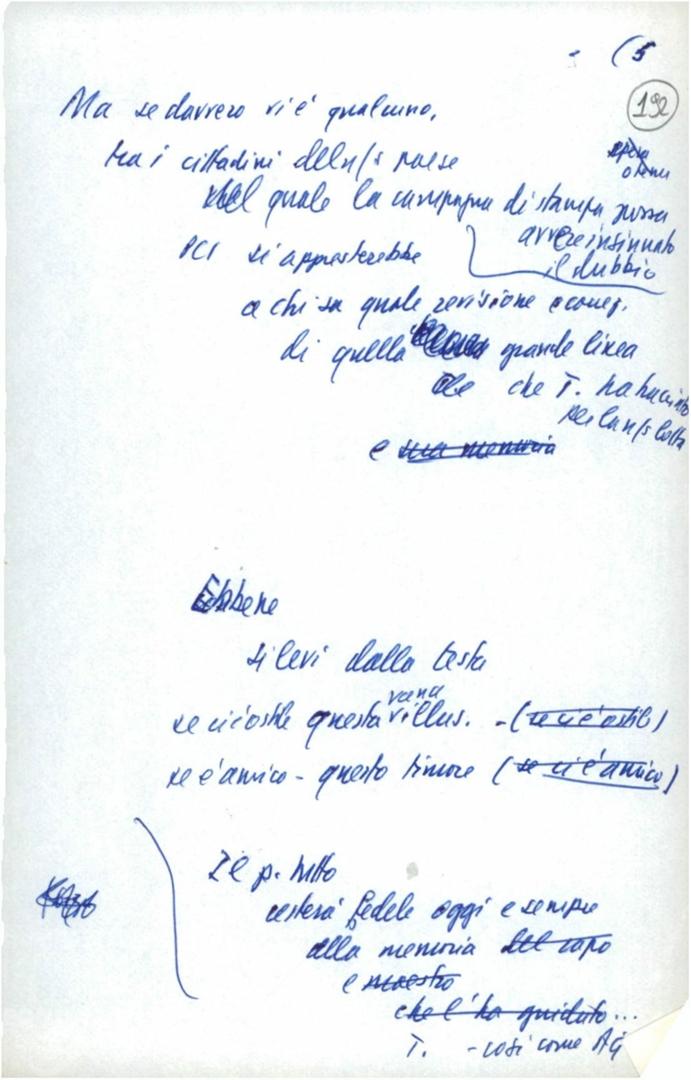 (5
192
Ma se davvero vi è qualcuno,
tra i cittadini del n/s paese
nel quale la campagna di stampa possa
avere insinuato
il dubbio
PCI si appresterebbe
a chi sa quale revisione e
di quella grande linea
che T. ha
per la n/s lotta
e sua memoria
Ebbene
si levi dalla testa
se ci è ostile questa vana illus. - (se ci è ostile)
se è amico - questo timore (se ci è amico)
Il p. tutto
resterà fedele oggi e sempre
alla memoria del capo
e maestro
che l'ha guidato...
T. - così come